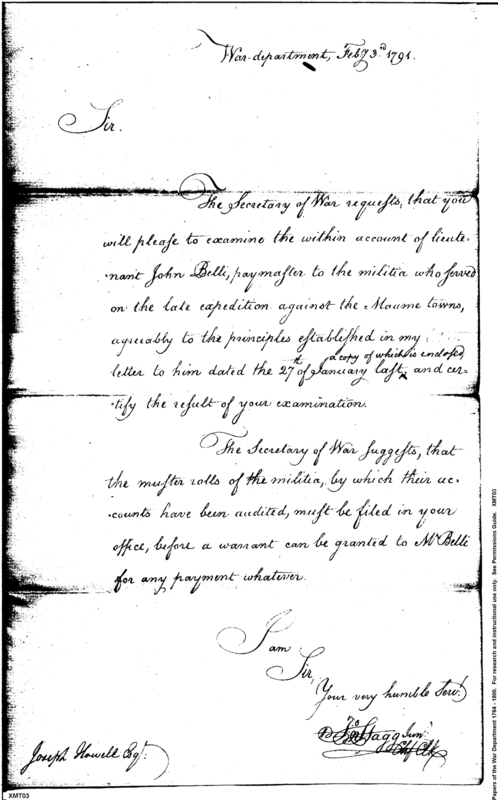 War-department, Feby 3rd 1791.
Sir.
The Secretary of War requests, that you
will please to examine the within account of lieute-
-nant John Belli, paymaster to the militia who served
on the late expedition against the Maume towns,
agreeably to the principles established in my
a copy of which is enclosed,
letter to him dated the 27th of January last, and cer-
-tify the result of your examination.
The Secretary of War suggests, that
the muster rolls of the militia, by which their ac-
-counts have been audited, must be filed in your
office, before a warrant can be granted to Mr Belli
for any payment whatever.
I am
Sir,
Your very humble Servt
Stagg Junr
Chf Clk
Joseph Howell Esqr.
XMT03
Papers of the War Department 1784 - 1800. For research and instructional use only. See Permissions Guide. XMT03